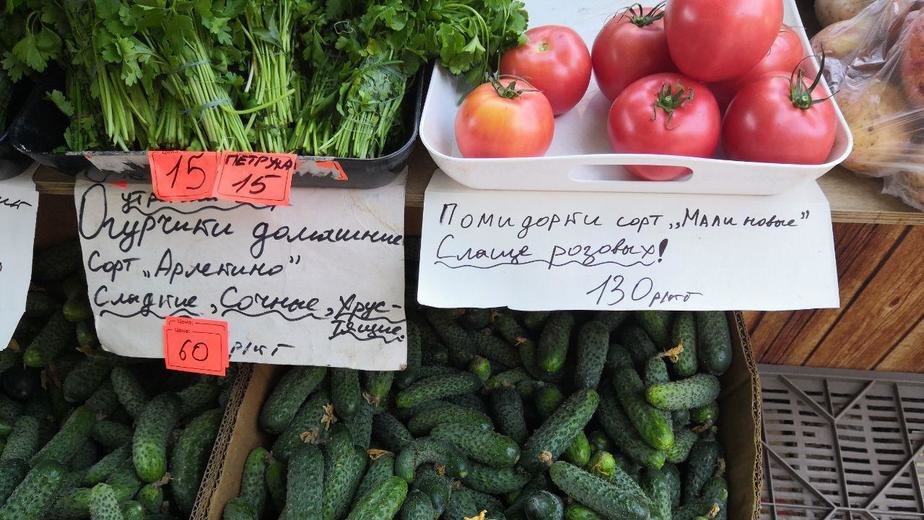 15
ПЕТРУХА
15
Огурчики домашние
Сорт „Арлекино"
Сладкие, Сочные, Хрус-
тящие
Цена:
60 р/кг
Помидорки сорт „Малиновые"
Слаще розовых!
130 р/кг